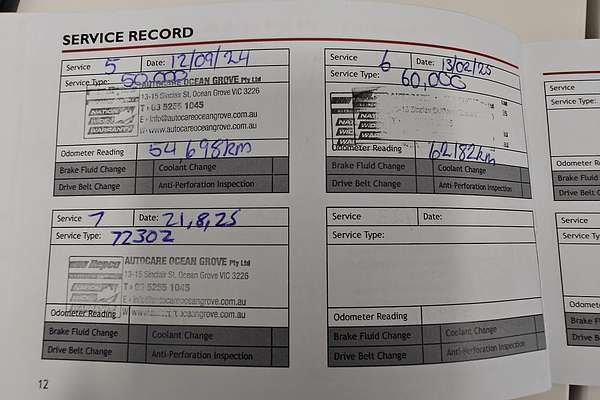 SERVICE RECORD
Service 5 Date: 12/09/24
Service Type: 50,000
AUTOCARE OCEAN GROVE Pty Ltd
13-15 Sinclair St, Ocean Grove VIC 3226
T • 03 5255 1045
E • info@autocareoceangrove.com.au
W • www.autocareoceangrove.com.au
Odometer Reading 54 698km
Brake Fluid Change Coolant Change
Drive Belt Change Anti-Perforation Inspection
Service 6 Date: 13/02/25
Service Type: 60,000
Odometer Reading 62182km
Brake Fluid Change Coolant Change
Drive Belt Change Anti-Perforation Inspection
Service 7 Date: 21,8,25
Service Type: 72302
Repco
AUTOCARE OCEAN GROVE Pty Ltd
13-15 Sinclair St, Ocean Grove VIC 3226
T • 03 5255 1045
E • info@autocareoceangrove.com.au
W • www.autocareoceangrove.com.au
Odometer Reading
Brake Fluid Change Coolant Change
Drive Belt Change Anti-Perforation Inspection
Service Date:
Service Type:
Odometer Reading
Brake Fluid Change Coolant Change
Drive Belt Change Anti-Perforation Inspection
12
Service
Service Type:
Odometer
Brake Flui
Drive Be
Service
Service Ty
Odometer
Brake Fl
Drive B